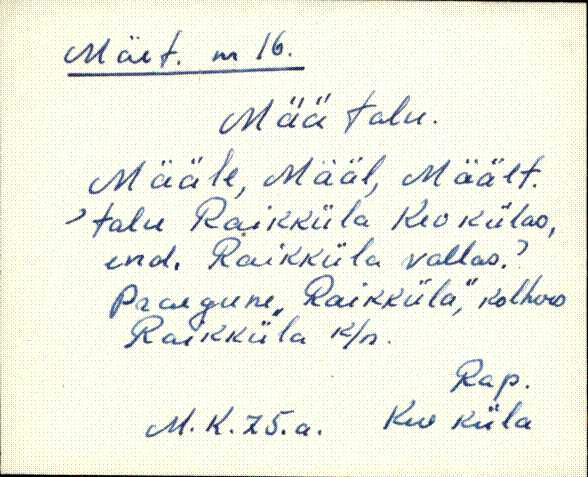 Mäet. m 16.
Mää talu.
Määle, Määl, Mäält.
'talu Raikküla Keo külas,
end. Raikküla vallas.'
Praegune „Raikküla“, kolhoos
Raikküla k/n.
Rap.
M. K. 75.a. Keo küla